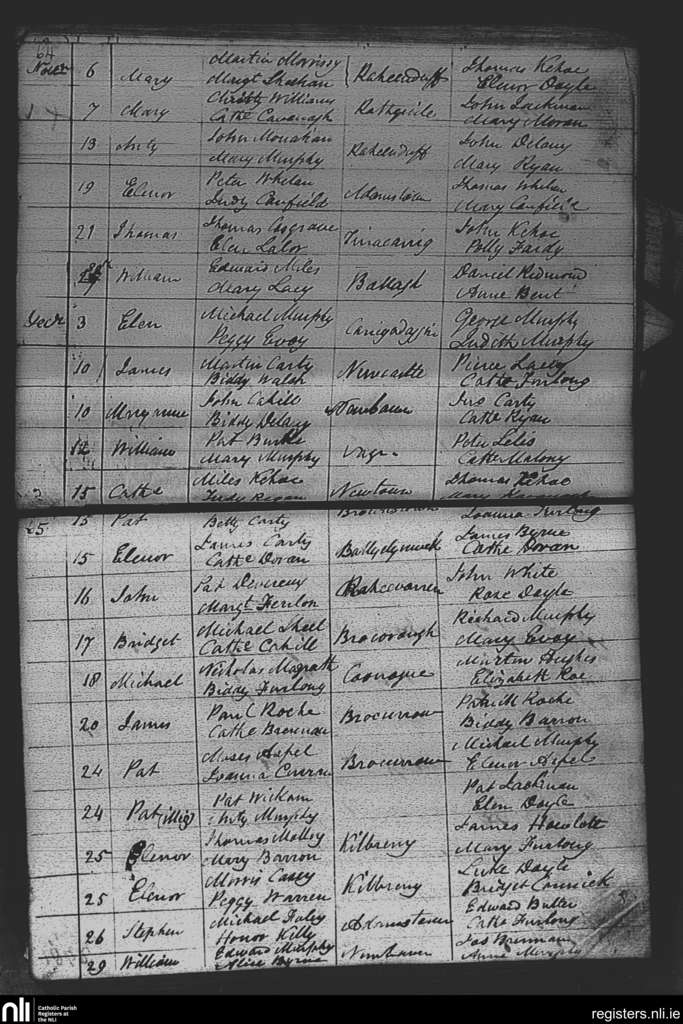 64
Novr 6 Mary Martin Morrissy Raheenduff Thomas Kehoe
Margt Sheehan Elenor Doyle
7 Mary Christr Williams Rathgeile John Lackman
Cathe Cavanagh Mary Moran
13 Anty John Monahan Raheenduff John Delany
Mary Murphy Mary Ryan
19 Elenor Peter Whelan Adamstown Thomas Whelan
Judy Canfield Mary Canfield
21 Thomas Thomas Cosgrave John Kehoe
Elen Lalor Polly Fardy
William Edward Miles Ballagh Daniel Redmond
Mary Lacy Anne Bent
Decr 3 Elen Michael Murphy George Murphy
Peggy Evoy Judith Murphy
10 James Martin Carty Newcastle Pierce Lacey
Biddy Walsh Cathe Furlong
10 Maryanne John Cahill Jno Carty
Biddy Delany Cathe Ryan
12 William Pat Burke Peter
Mary Murphy Cathe Malony
15 Cathe Miles Kehoe Newtown Thomas Kehoe
Judy Regan Mary Kavanagh
25
15 Pat Betty Carty Joanna Furlong
15 Elenor James Carty James Byrne
Cathe Doran Cathe Doran
16 John Pat Devereux John White
Margt Fenlon Rose Doyle
17 Bridget Michael Skeel Brocorough Richard Murphy
Cathe Cahill Mary Evoy
18 Michael Nicholas Magrath Coonogue Martin Hughes
Biddy Furlong Elizabeth Roe
20 James Paul Roche Brocurrow Patrick Roche
Cathe Brennan Biddy Barron
24 Pat Moses Aspel Brocurrow Michael Murphy
Joanna Curran Elenor Aspel
24 Pat (illig) Pat Wickam Pat Lackman
Anty Murphy Elen Doyle
25 Elenor Thomas Malloy Kilbreny James Howlett
Mary Barron Mary Furlong
25 Elenor Morris Casey Kilbreny Luke Doyle
Peggy Warren Bridget Cormick
26 Stephen Michael Foley Adamstown Edward Butler
Honor Kelly Cathe Furlong
29 William Edward Murphy Newbawn Jas Brennan
Alice Byrne Anne Murphy
nli Catholic Parish
Registers at
the NLI
registers.nli.ie